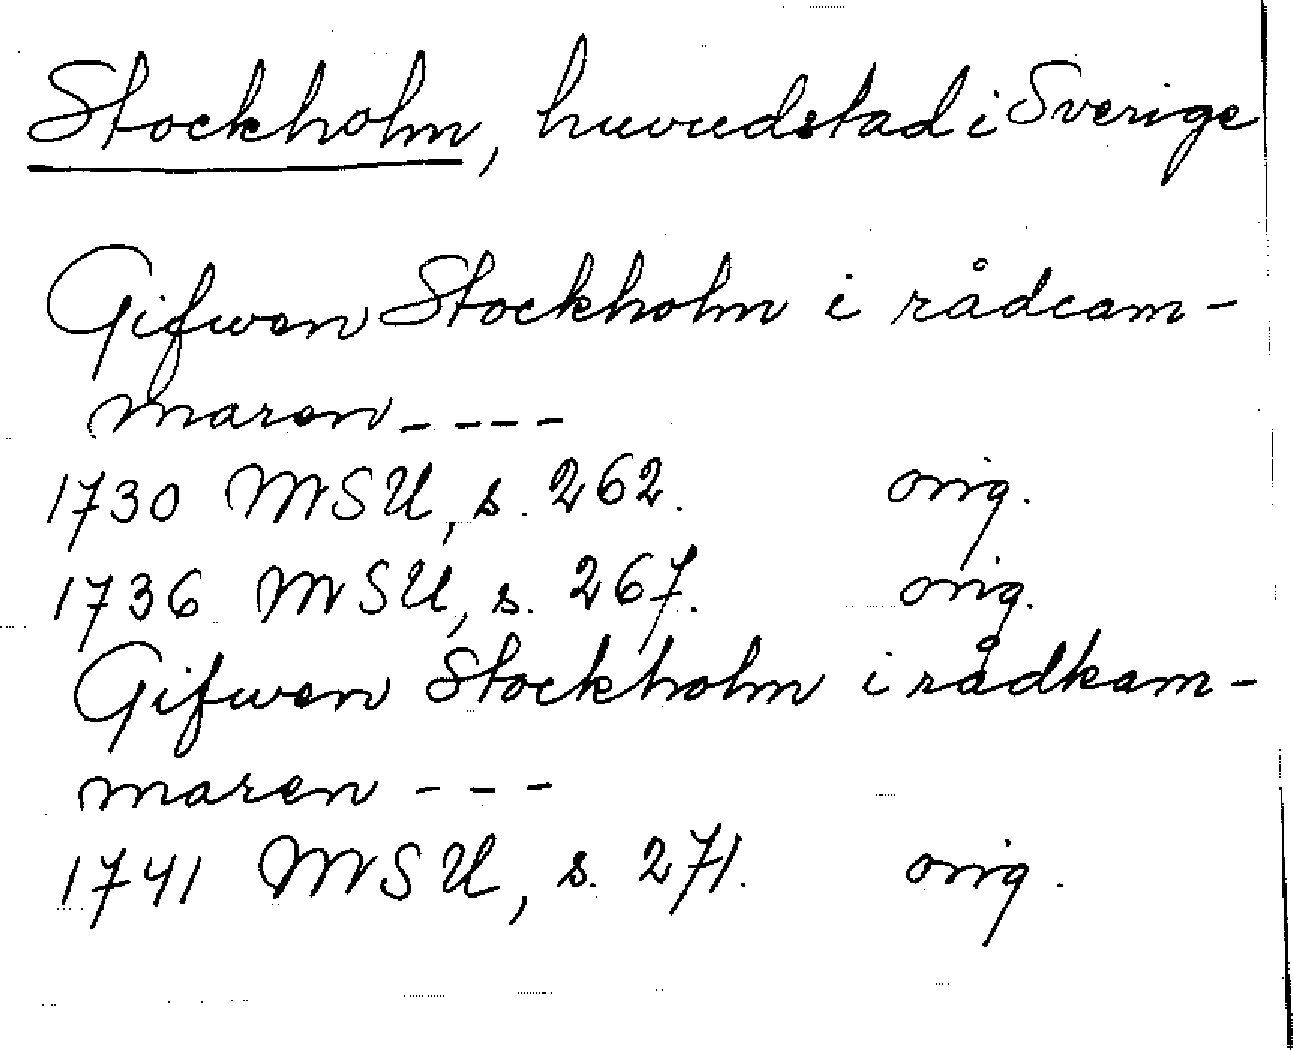 Stockholm, huvudstad i Sverige
Gifwen Stockholm i rådcam-
maren ----
1730 MSU, s. 262. orig.
1736 MSU, s. 267. orig.
Gifwen Stockholm i rådkam-
maren ---
1741 MSU, s. 271. orig.